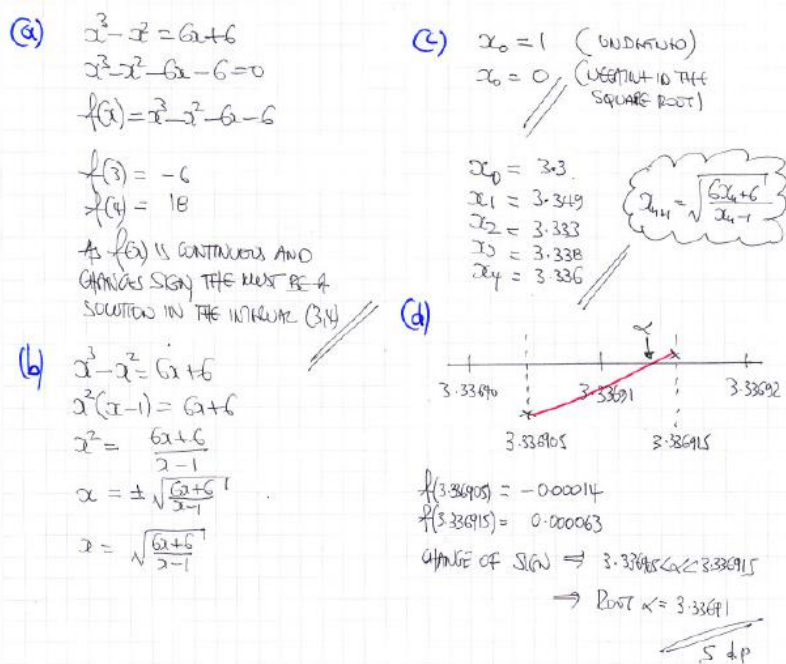 (a)
x³ - x² = 6x+6
x³-x²-6x-6=0
f(x)=x³-x²-6x-6
f(3) = -6
f(4) = 18
AS f(x) IS CONTINUOUS AND
CHANGES SIGN THE MUST BE A
SOLUTION IN THE INTERVAL (3,4)
(b)
x³ - x² = 6x+6
x²(x-1) = 6x+6
x² = (6x+6)/(x-1)
x = ±√((6x+6)/(x-1))
x = √((6x+6)/(x-1))
(c)
x₀ = 1 (UNDEFINED)
x₀ = 0 (NEGATIVE IN THE
SQUARE ROOT)
x₀ = 3.3
x₁ = 3.349
x₂ = 3.333
x₃ = 3.338
x₄ = 3.336
xₙ₊₁ = √((6xₙ+6)/(xₙ-1))
(d)
α
3.33690 3.33691 3.33692
3.336905 3.336915
f(3.336905) = -0.00014
f(3.336915) = 0.000063
CHANGE OF SIGN ⇒ 3.336905<α<3.336915
⇒ ROOT α = 3.33691
5 d.p